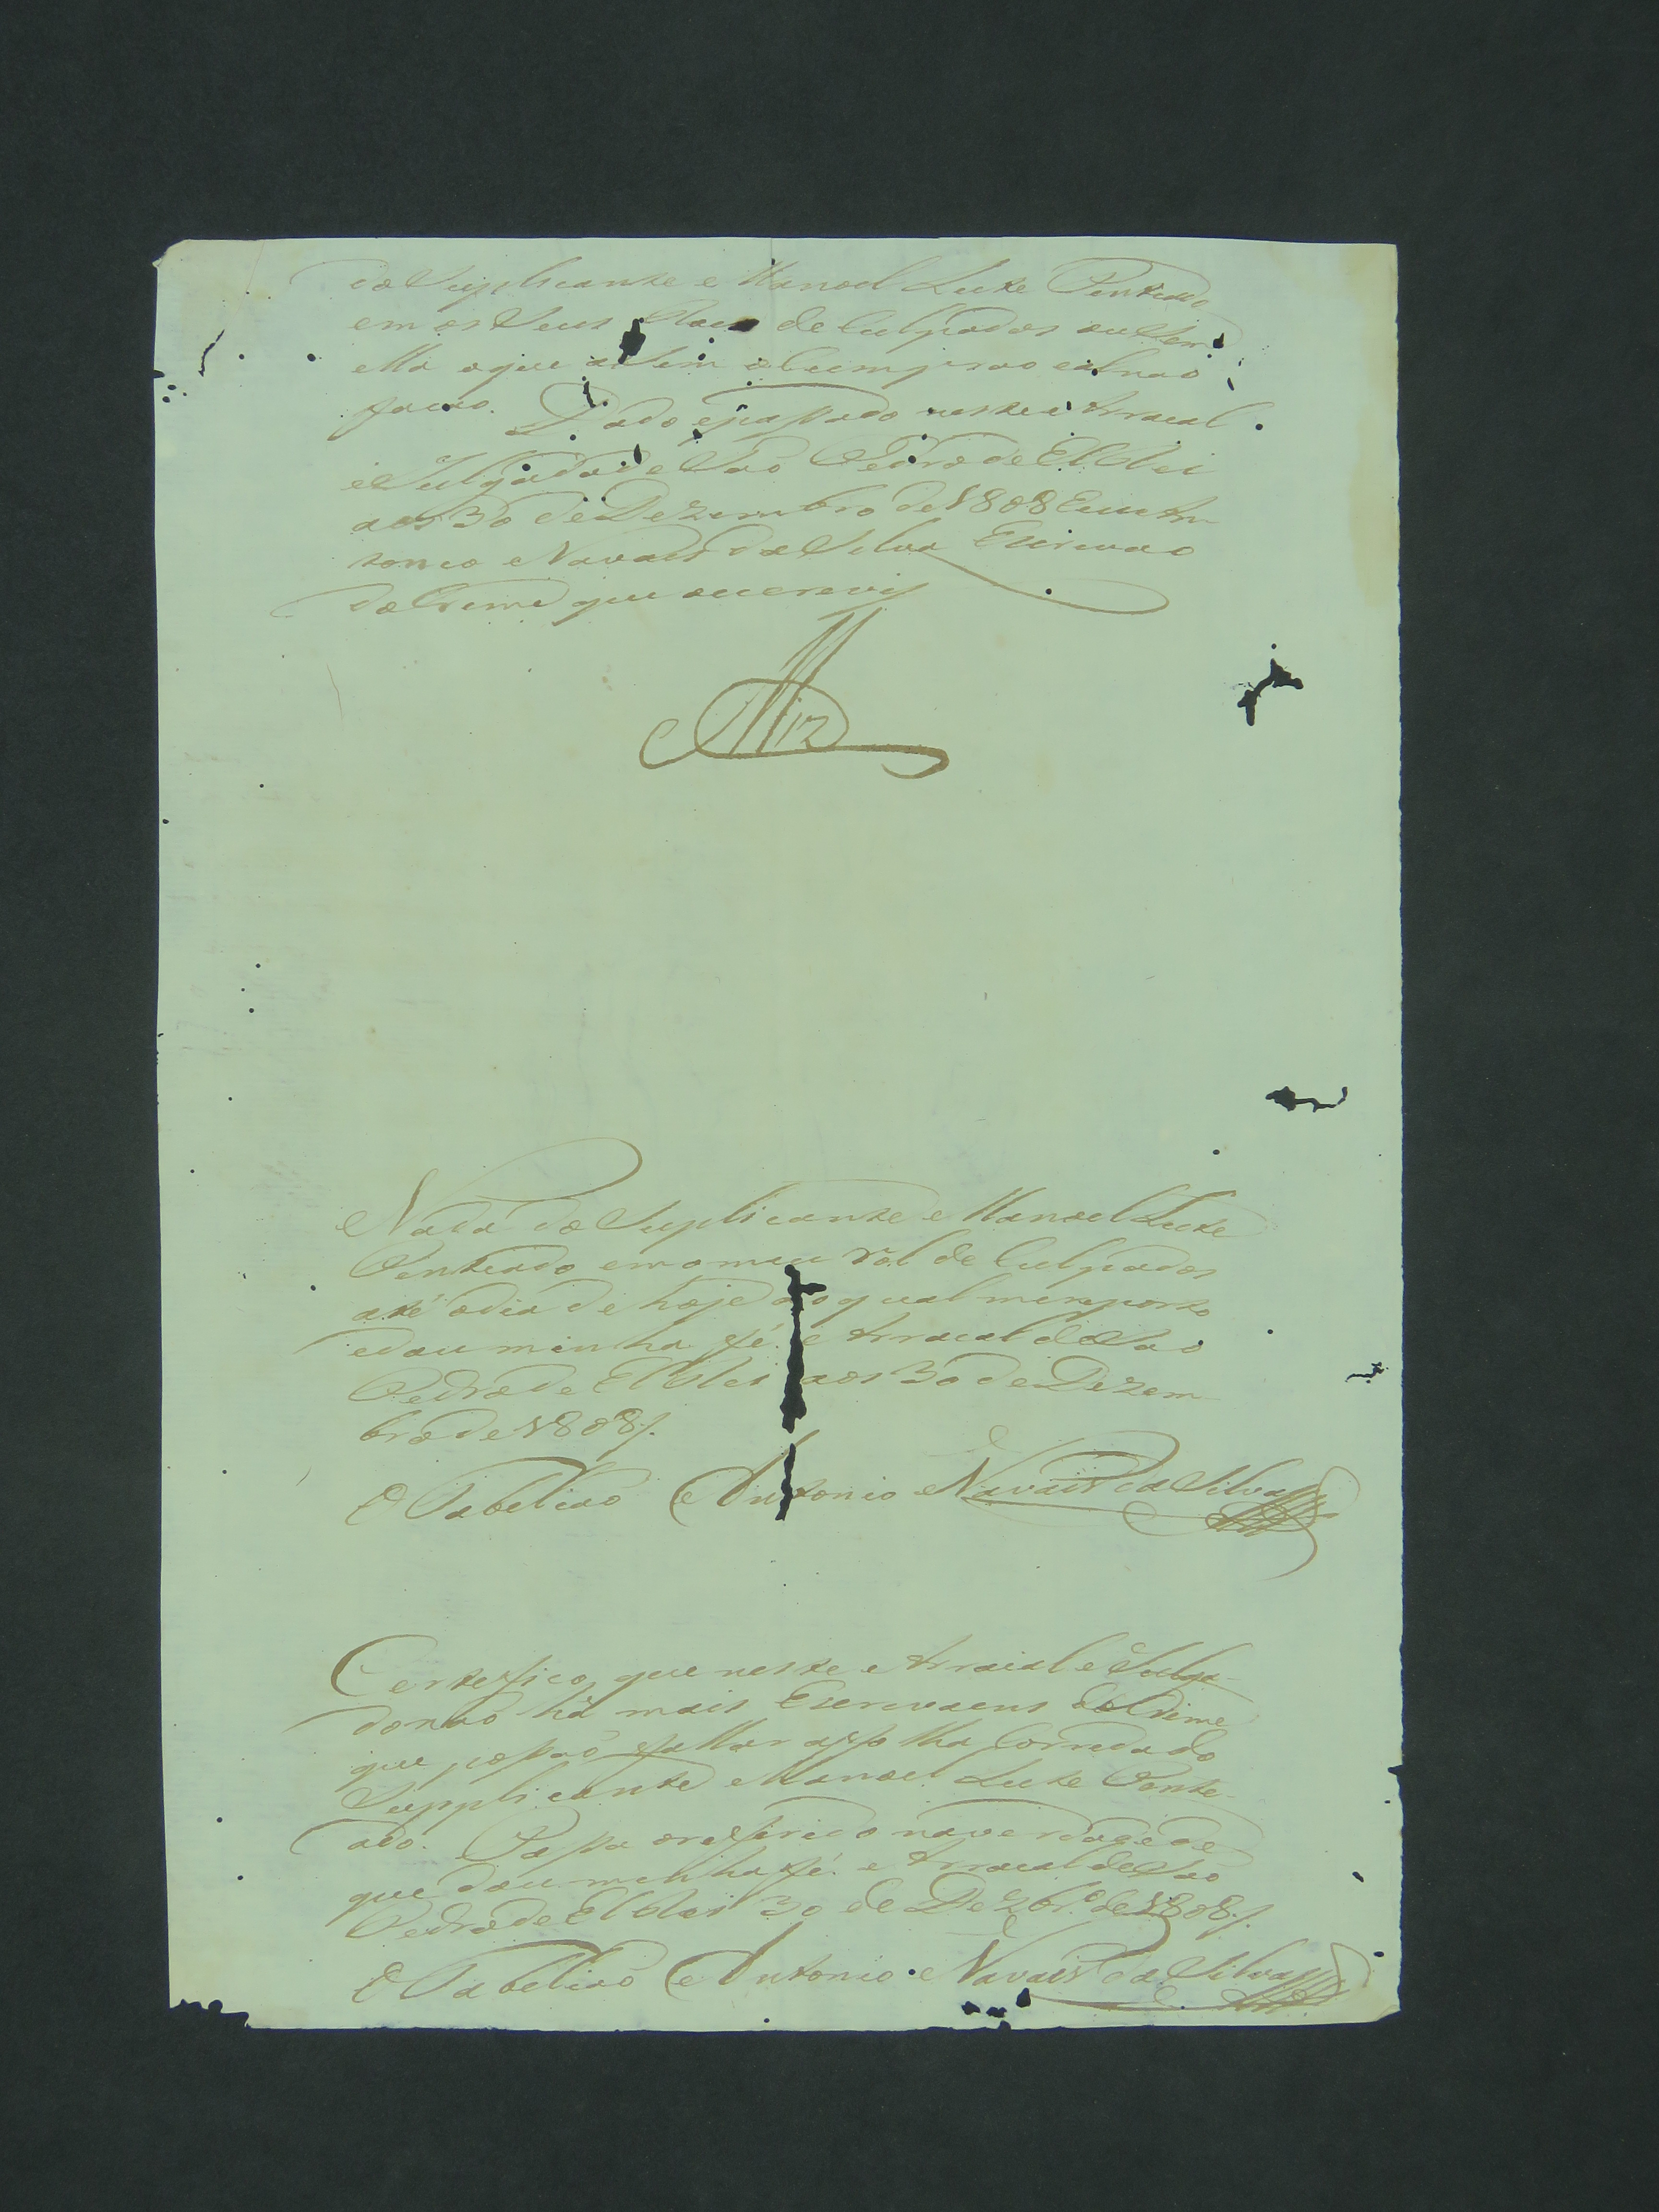 do Suplicante Manoel Leite Penteado
em os seus Roes de Culpados ou sem
ella o que asim o Cumprao e al nao
facao. Dado e passado neste Arraial
e Julgado de Sao Pedro de El Rei
aos 30 de Dezembro de 1808 Eu An
tonio Navais da Silva Escrivao
do Crime que o escrevy
Nada do Suplicante Manoel Leite
Penteado em o meu rol de Culpados
até o dia de hoje ao qual me reporto
e dou minha fé. Arraial de Sao
Pedro de El Rei aos 30 de Dezem
bro de 1808 /.
O Tabeliaõ Antonio Navais da Silva
Certefico que neste Arraial e Julga-
do naõ há mais Escrivaens do Crime
que possaõ fallar a ffolha Corrida do
Supplicante Manoel Leite Pente-
ado. Passa o refferido na verdade de
que dou minha fé. Arraial de Saõ
Pedro de El Rei 30 de Dezbr.o de 1808 /.
O Tabeliaõ Antonio Navais da Silva